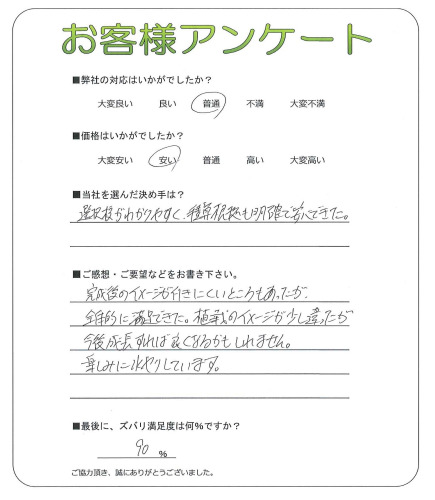 お客様アンケート
■弊社の対応はいかがでしたか？
大変良い 良い 普通 不満 大変不満
■価格はいかがでしたか？
大変安い 安い 普通 高い 大変高い
■当社を選んだ決め手は？
選択肢がわかりやすく、積算根拠も明確で安心できた。
■ご感想・ご要望などをお書き下さい。
完成後のイメージが付きにくいところもあったが
全体的に満足できた。植栽のイメージが少し違ったが
今後成長すれば良くなるかもしれません。
楽しみに水やりしています。
■最後に、ズバリ満足度は何%ですか？
90 %
ご協力頂き、誠にありがとうございました。